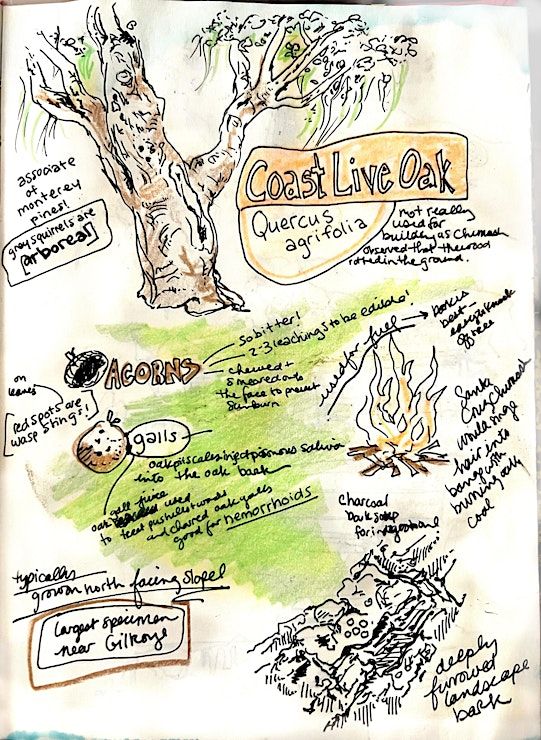 Coast Live Oak
Quercus
agrifolia
associate
of
monterey
pines!
grey squirrels are
[arboreal]
not really
used for
building as Chumash
observed that the wood
rotted in the ground.
ACORNS
so bitter!
2-3 leachings to be edible!
chewed +
smeared onto
the face to prevent
sunburn
used for fuel
bark is
best -
easy to knock
off tree
on
leaves
red spots are
wasp stings!
galls
oak pit scales inject poisonous saliva
into the oak bark
oak gall juice
used
to treat pustulent wounds
and charred oak galls
good for hemorrhoids
Santa
Cruz Chumash
would singe
hair into
bangs with
burning oak
coal
charcoal
bark
for
typically
grown north facing slope!
largest specimen
near Gilroy!
deeply
furrowed
landscape
bark